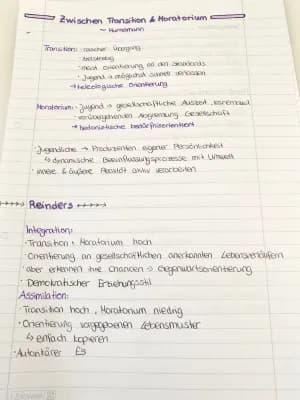 Zwischen Transition & Moratorium
~ Hurrelmann
Transition: rascher Übergang
beiläufig
meist Orientierung an den
Jugend möglichst schnell verlassen
→ teleologische Orientierung
Moratorium: Jugend → gesellschaftliche Auszeit,
vorübergehenden Ausgliederung Gesellschaft
→ hedonistische bedürfnisorientiert
Jugendliche → Produzenten eigener Persönlichkeit
↳ dynamische Beeinflussungsprozesse mit Umwelt
innere & äußere Realität aktiv verarbeiten
Reinders
Integration:
· Transition & Moratorium hoch
· Orientierung an gesellschaftlichen anerkannten Lebensverläufen
· aber erkennen ihre Chancen → Gegenwartsorientierung
· Demokratischer Erziehungsstil
Assimilation:
· Transition hoch, Moratorium niedrig
· Orientierung vorgegebenen Lebensmuster
↳ einfach kopieren
· Autoritärer ES